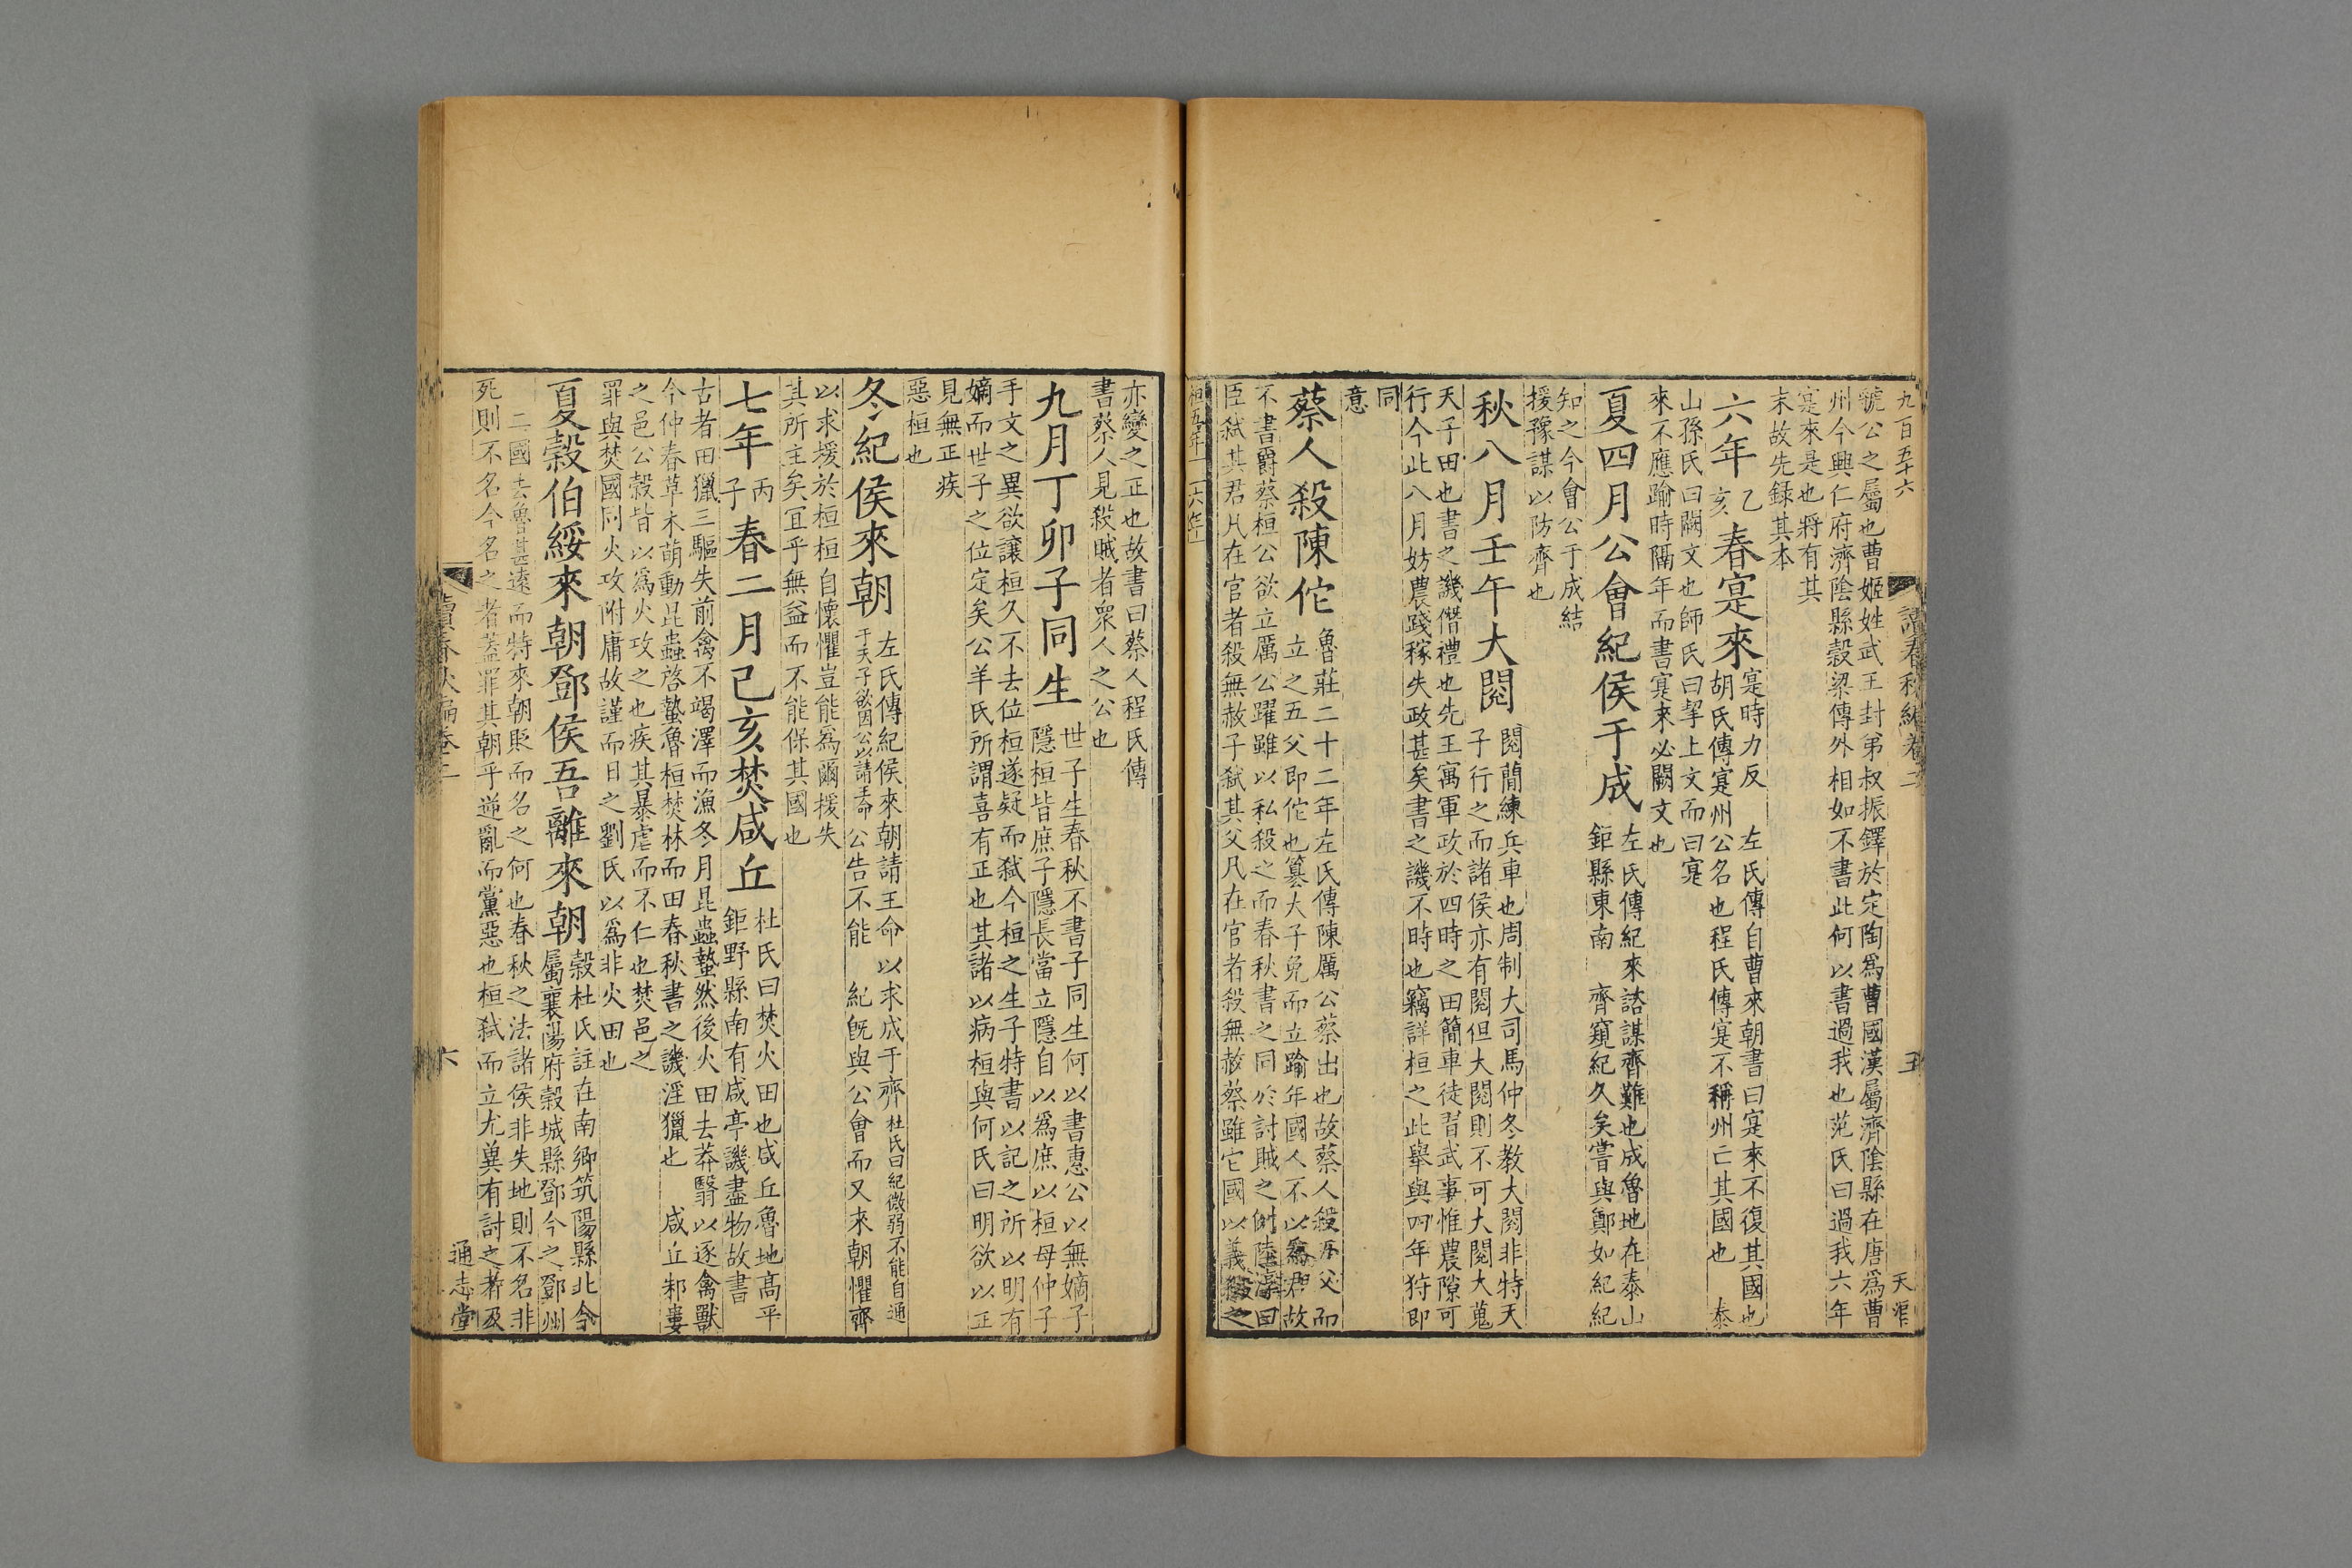 九百五十六
讀春秋編卷二
五
天渥
虢公之屬也曹姬姓武王封弟叔振鐸於定陶為曹國漢屬濟陰縣在唐為曹
州今興仁府濟陰縣穀梁傳外相如不書此何以書過我也范氏曰過我六年
寔來是也將有其
末故先録其本
六年
乙
亥
春寔來
寔時力反
左氏傳自曹來朝書曰寔來不復其國也
胡氏傳寔州公名也程氏傳寔不稱州亡其國也
泰
山孫氏曰闕文也師氏曰挈上文而曰寔
來不應踰時隔年而書寔來必闕文也
夏四月公會紀侯于成
左氏傳紀來諮謀齊難也成魯地在泰山
鉅縣東南
齊窺紀久矣嘗與鄭如紀紀
知之今會公于成結
援豫謀以防齊也
秋八月壬午大閱
閱蕳練兵車也周制大司馬仲冬教大閱非特天
子行之而諸侯亦有閱但大閱則不可大閱大蒐
天子田也書之譏僭禮也先王寓軍政於四時之田簡車徒習武事惟農隙可
行今此八月妨農踐稼失政甚矣書之譏不時也竊詳桓之此舉與四年狩即
同
意
蔡人殺陳佗
魯莊二十二年左氏傳陳厲公蔡出也故蔡人殺五父而
立之五父即佗也簒太子免而立踰年國人不以為君故
不書爵蔡桓公欲立厲公躍雖以私殺之而春秋書之同於討賊之例陸淳曰
臣弑其君凡在官者殺無赦子弑其父凡在官者殺無赦蔡雖它國以義殺之
桓五年 六年
亦變之正也故書曰蔡人程氏傳
書蔡人見殺賊者衆人之公也
九月丁卯子同生
世子生春秋不書子同生何以書惠公以無嫡子
隱桓皆庶子隱長當立隱自以為庶以桓母仲子
手文之異欲讓桓久不去位桓遂疑而弑今桓之生子特書以記之所以明有
嫡而世子之位定矣公羊氏所謂喜有正也其諸以病桓與何氏曰明欲以正
見無正疾
惡桓也
冬紀侯來朝
左氏傳紀侯來朝請王命以求成于齊
杜氏曰紀微弱不能自通
于天子欲因公以請王命
公告不能
紀旣與公會而又來朝懼齊
以求援於桓桓自懷懼豈能為爾援失
其所主矣宜乎無益而不能保其國也
七年
丙
子
春二月己亥焚咸丘
杜氏曰焚火田也咸丘魯地高平
鉅野縣南有咸亭譏盡物故書
古者田獵三驅失前禽不竭澤而漁冬月昆蟲蟄然後火田去莽翳以逐禽獸
今仲春草木萌動昆蟲啓蟄魯桓焚林而田春秋書之譏淫獵也
咸丘邾婁
之邑公穀皆以為火攻之也疾其暴虐而不仁也焚邑之
罪與焚國同火攻附庸故謹而日之劉氏以為非火田也
夏穀伯綏來朝鄧侯吾離來朝
穀杜氏註在南鄉筑陽縣北今
屬襄陽府穀城縣鄧今之鄧州
二國去魯甚遠而特來朝貶而名之何也春秋之法諸侯非失地則不名非
死則不名今名之者蓋罪其朝乎逆亂而黨惡也桓弑而立尤兾有討之者及
讀春秋編卷二
六
通志堂